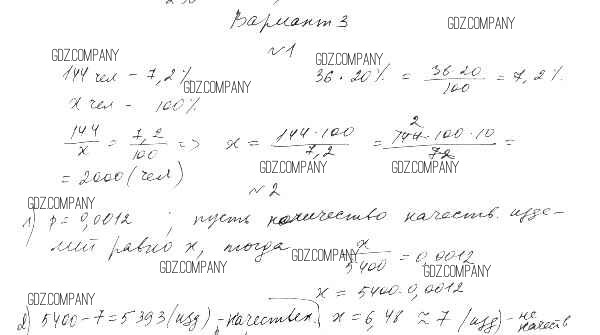 Вариант 3
GDZ.COMPANY
№1
GDZ.COMPANY
GDZ.COMPANY
144 чел - 7,2%
36 · 20% = 36·20/100 = 7,2%.
GDZ.COMPANY
x чел - 100%
144/x = 7,2/100 => x = 144·100/7,2 = 144·100·10/72 =
2
GDZ.COMPANY
GDZ.COMPANY
= 2000 (чел)
№2
GDZ.COMPANY
1) p = 0,0012 ; пусть количество качеств. изде-
лий равно x, тогда x/5400 = 0,0012
GDZ.COMPANY
GDZ.COMPANY
GDZ.COMPANY
x = 5400·0,0012
GDZ.COMPANY
2) 5400-7=5393 (изд) - качествен. x = 6,48 ≈ 7 (изд) - не качеств